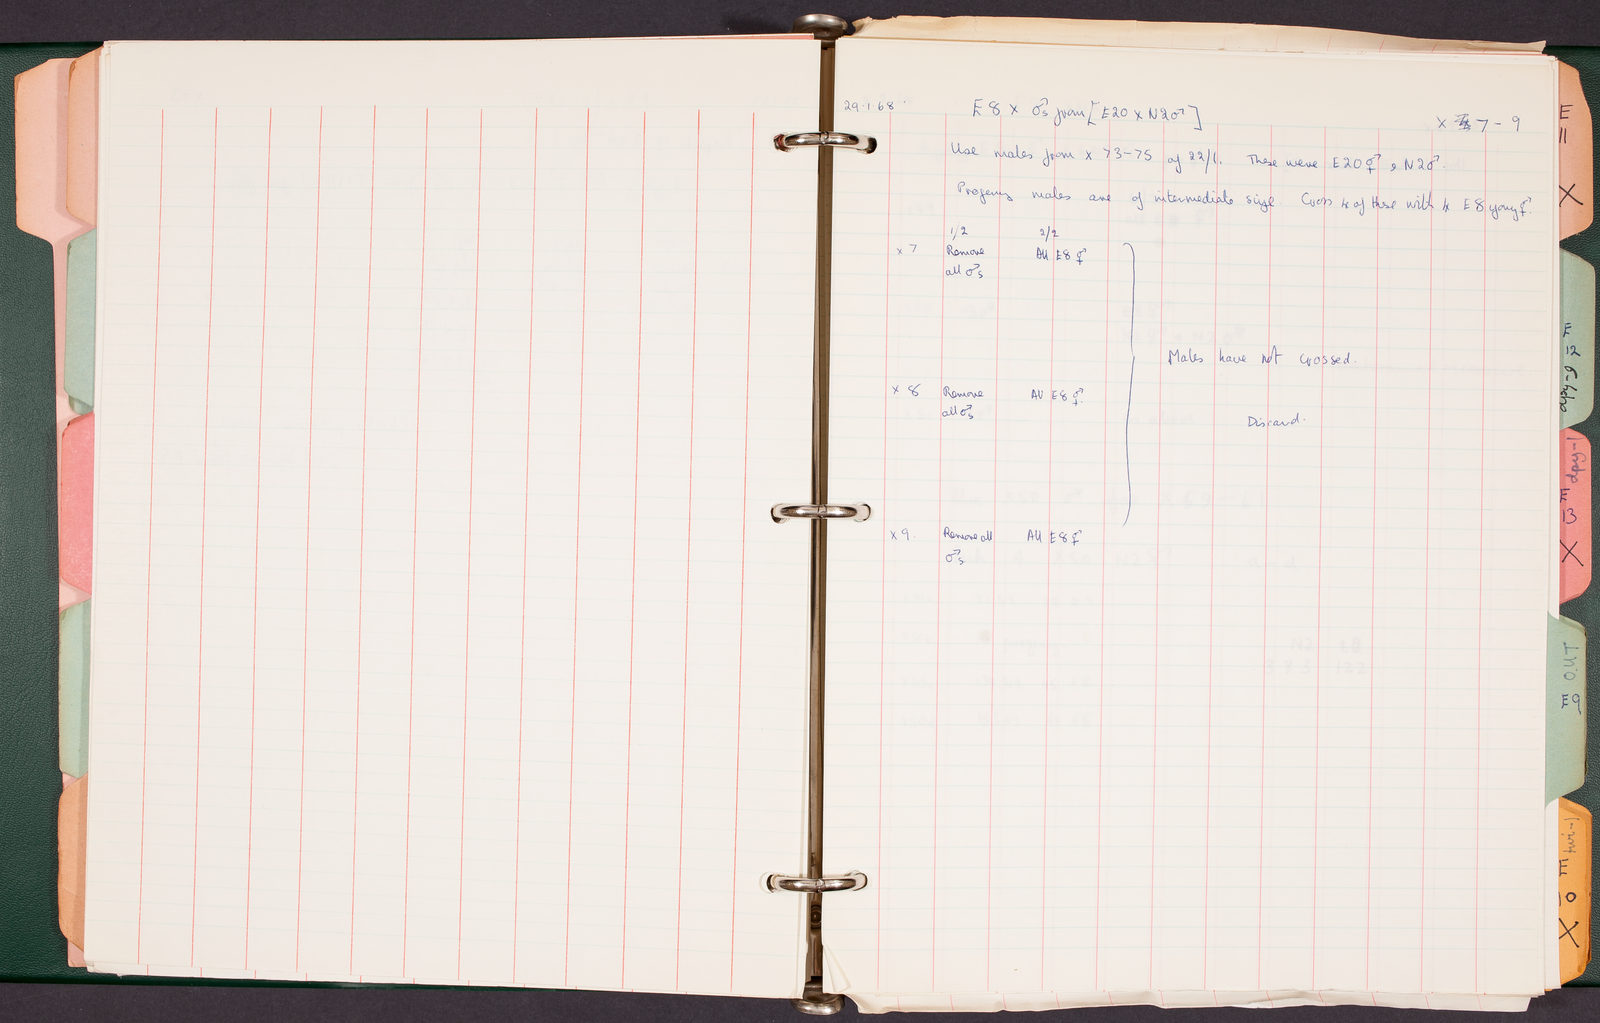 29.1.68. E8 × ♂s from [E20 × N2♂] × 7-9
Use males from × 73-75 of 22/1. These were E20⚥, N2♂.
Progeny males are of intermediate size. Cross 4 of these with 4 E8 young⚥.
1/2 2/2
×7 Remove All E8⚥
all ♂s
Males have not crossed.
×8 Remove All E8⚥.
all ♂s
Discard.
×9. Remove all All E8⚥
♂s
E
11
X
E
12
dpy-9
dpy-1
E
13
X
OUT
E9
E
10
X